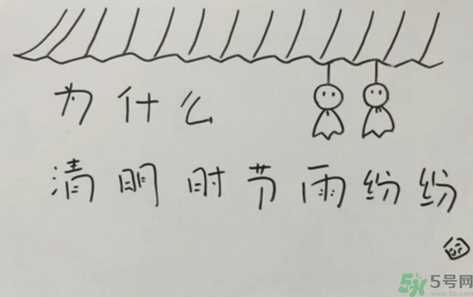 为什么
清明时节雨纷纷
5号网